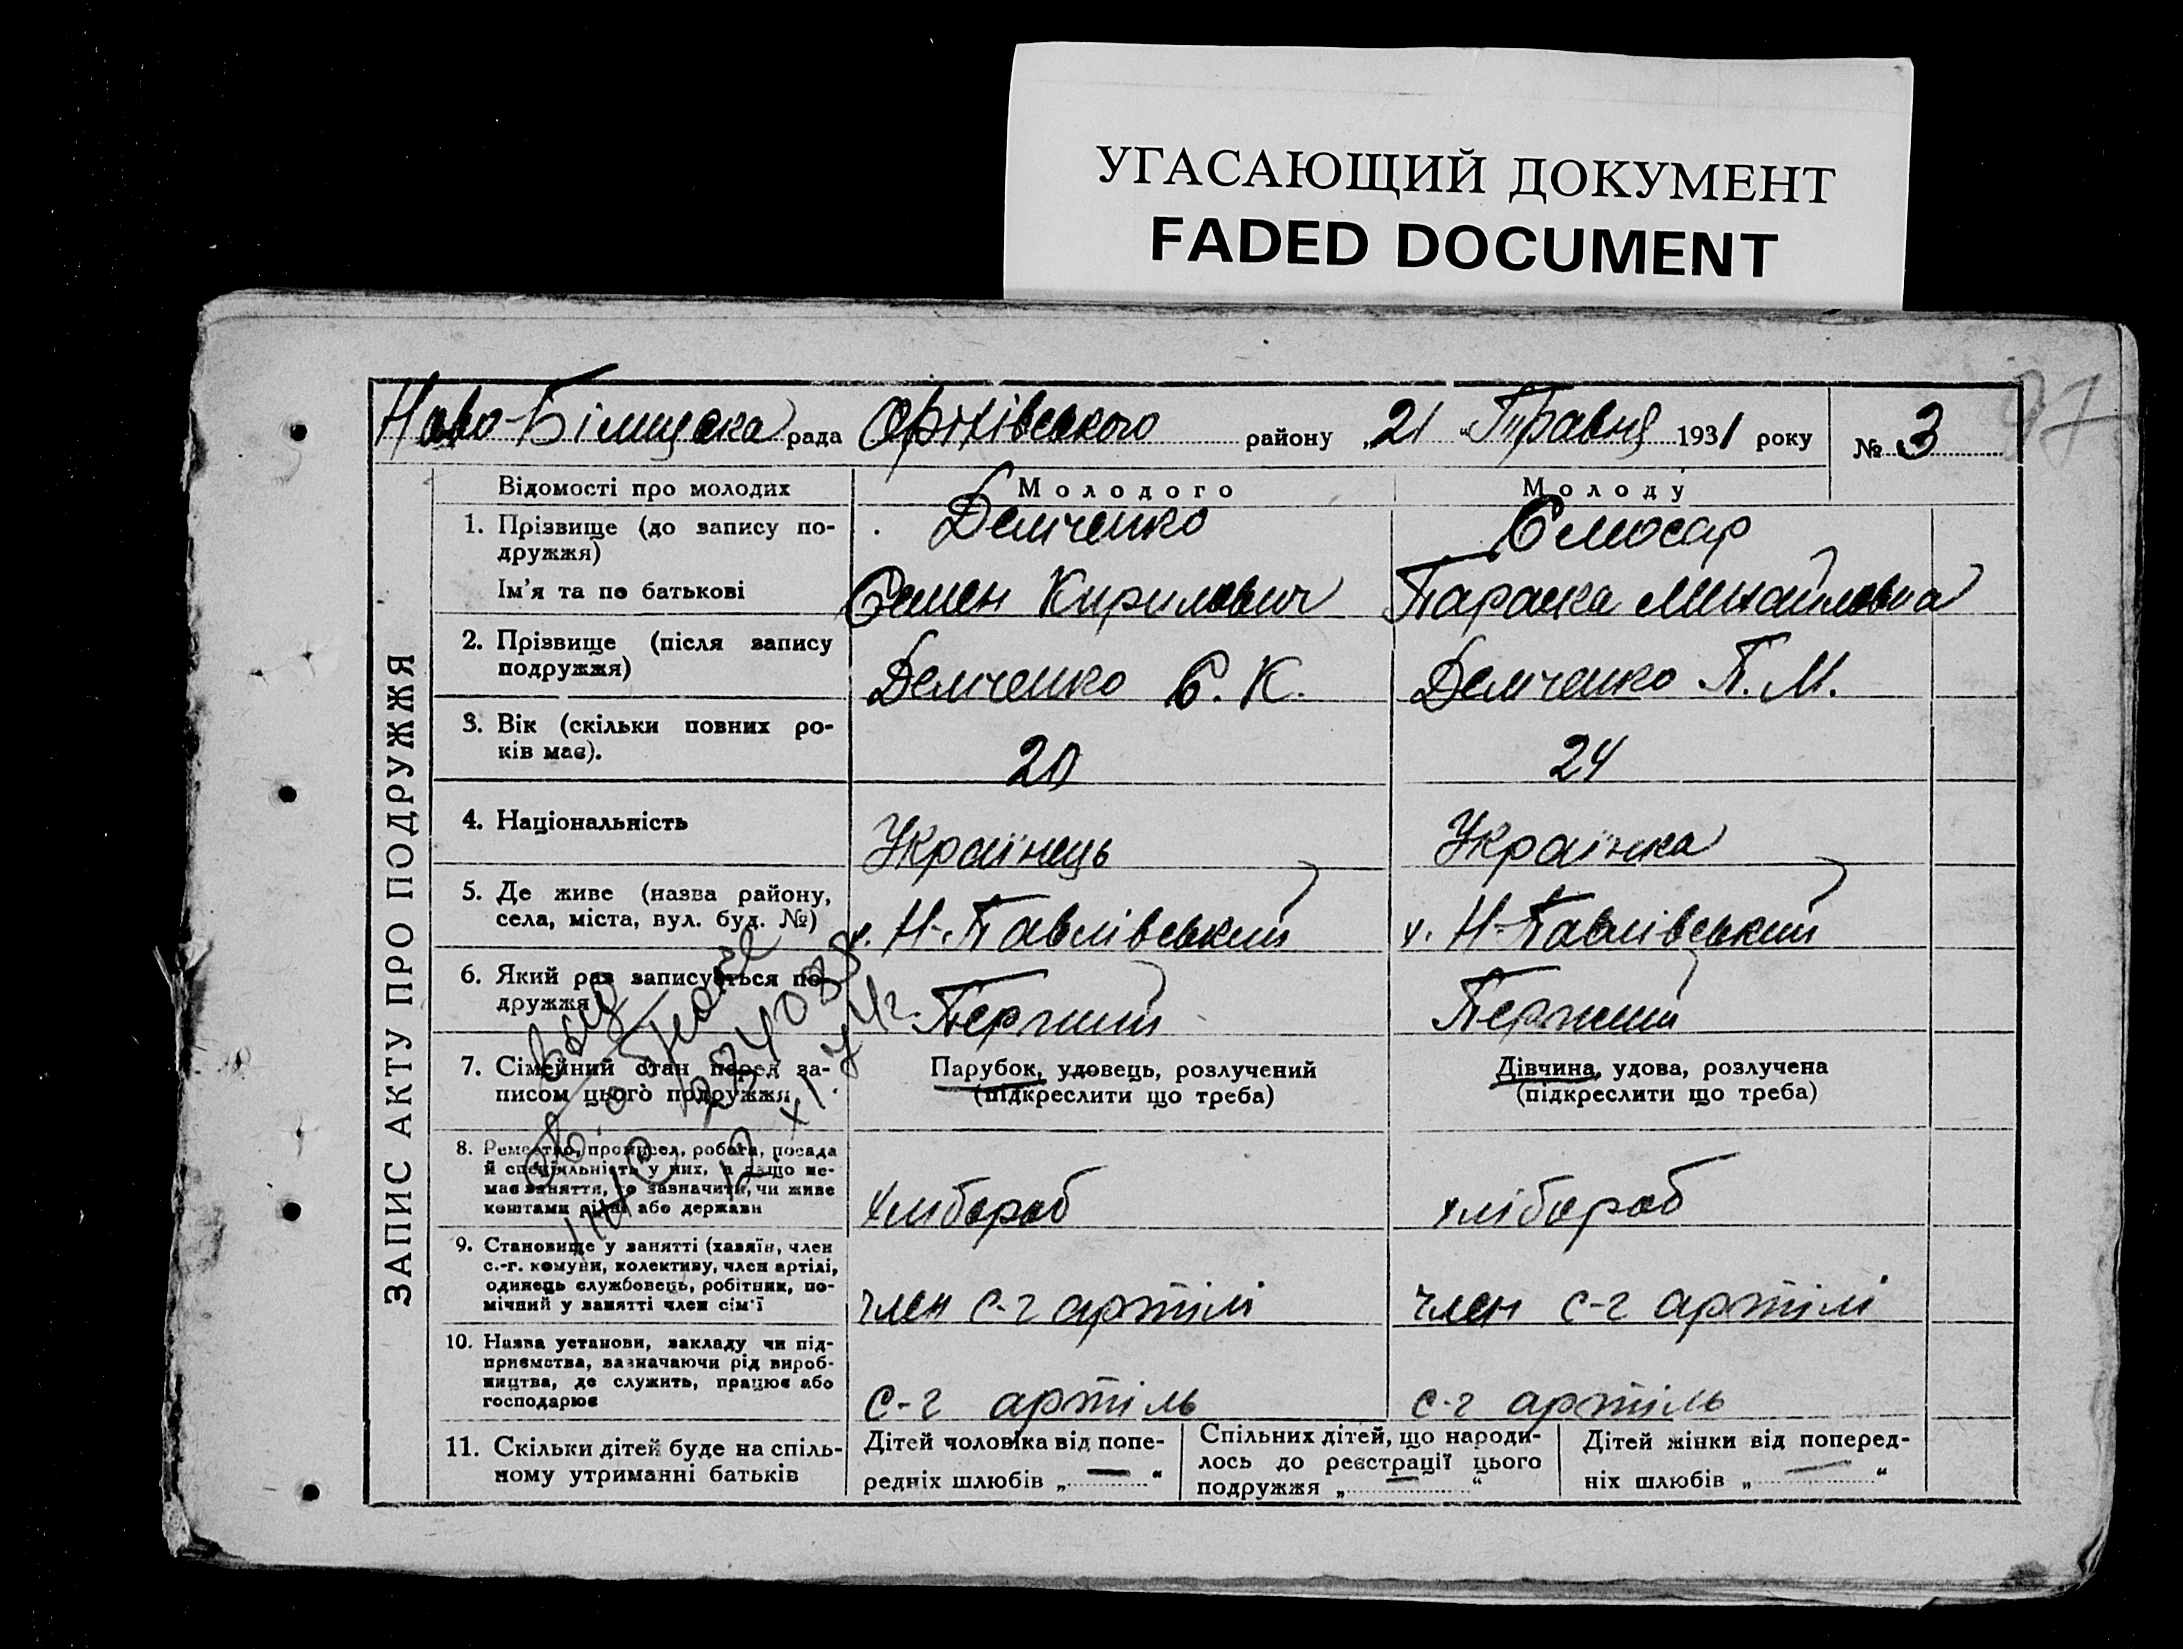 УГАСАЮЩИЙ ДОКУМЕНТ
FADED DOCUMENT
97
Ново- рада Оріхівського району „21 “ Травня 1931 року № 3
ЗАПИС АКТУ ПРО ПОДРУЖЖЯ
Відомості про молодих Молодого Молоду
1. Прізвище (до запису по-
дружжя) Демченко Слюсар
Ім'я та по батькові Семен Кирилович Параска Михайловна
2. Прізвище (після запису
подружжя) Демченко С. К. Демченко П. М.
3. Вік (скільки повних ро-
ків має). 20 24
4. Національність Українець Українка
5. Де живе (назва району,
села, міста, вул. буд. №) х. Н-Павлівський х. Н-Павлівський
6. Який раз записується по-
дружжя Перший Перший
7. Сімейний стан перед за-
писом цього подружжя
Парубок, удовець, розлучений
(підкреслити що треба)
Дівчина, удова, розлучена
(підкреслити що треба)
8. Ремество, промисел, робота, посада
й спеціяльність у них, а якщо не-
має заняття, то зазначити, чи живе
коштами рідні або держави хлібороб хлібороб
9. Становище у занятті (хазяїн, член
с.-г. комуни, колективу, член артілі,
одинець службовець, робітник, по-
мічний у занятті член сім'ї член с-г артілі член с-г артілі
10. Назва установи, закладу чи під-
приємства, зазначаючи рід вироб-
ництва, де служить, працює або
господарює с-г артіль с-г артіль
11. Скільки дітей буде на спіль-
ному утриманні батьків
Дітей чоловіка від попе-
редніх шлюбів „ — “
Спільних дітей, що народи-
лось до реєстрації цього
подружжя „ — “
Дітей жінки від поперед-
ніх шлюбів „ — “